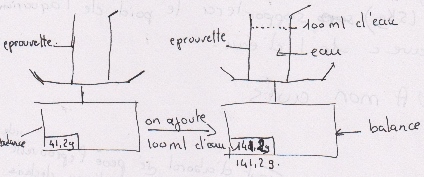 eprouvette
balance
41,2g
on ajoute
100ml d'eau
100ml d'eau
eprouvette
eau
balance
141,2g
141,2g.
A mon